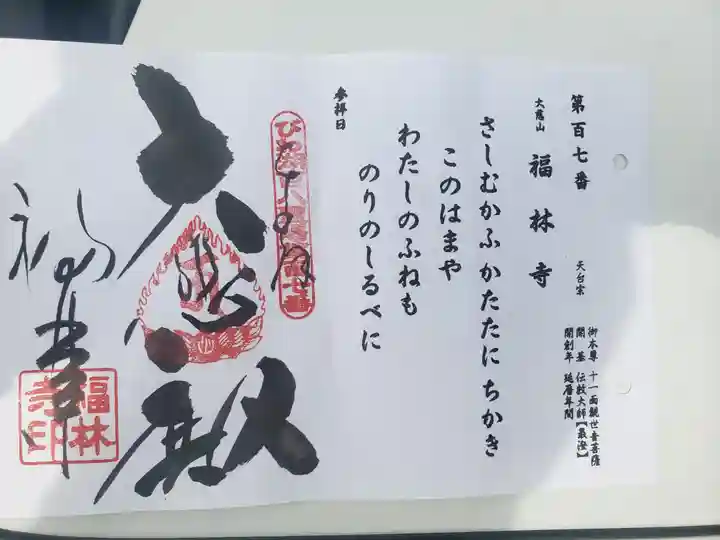 第百七番
大慈山 福林寺 天台宗
御本尊 十一面観世音菩薩
開基 伝教大師【最澄】
開創年 延暦年間
さしむかふかたたにちかき
このはまや
わたしのふねも
のりのしるべに
参拝日
大悲殿
福林寺
福林寺印